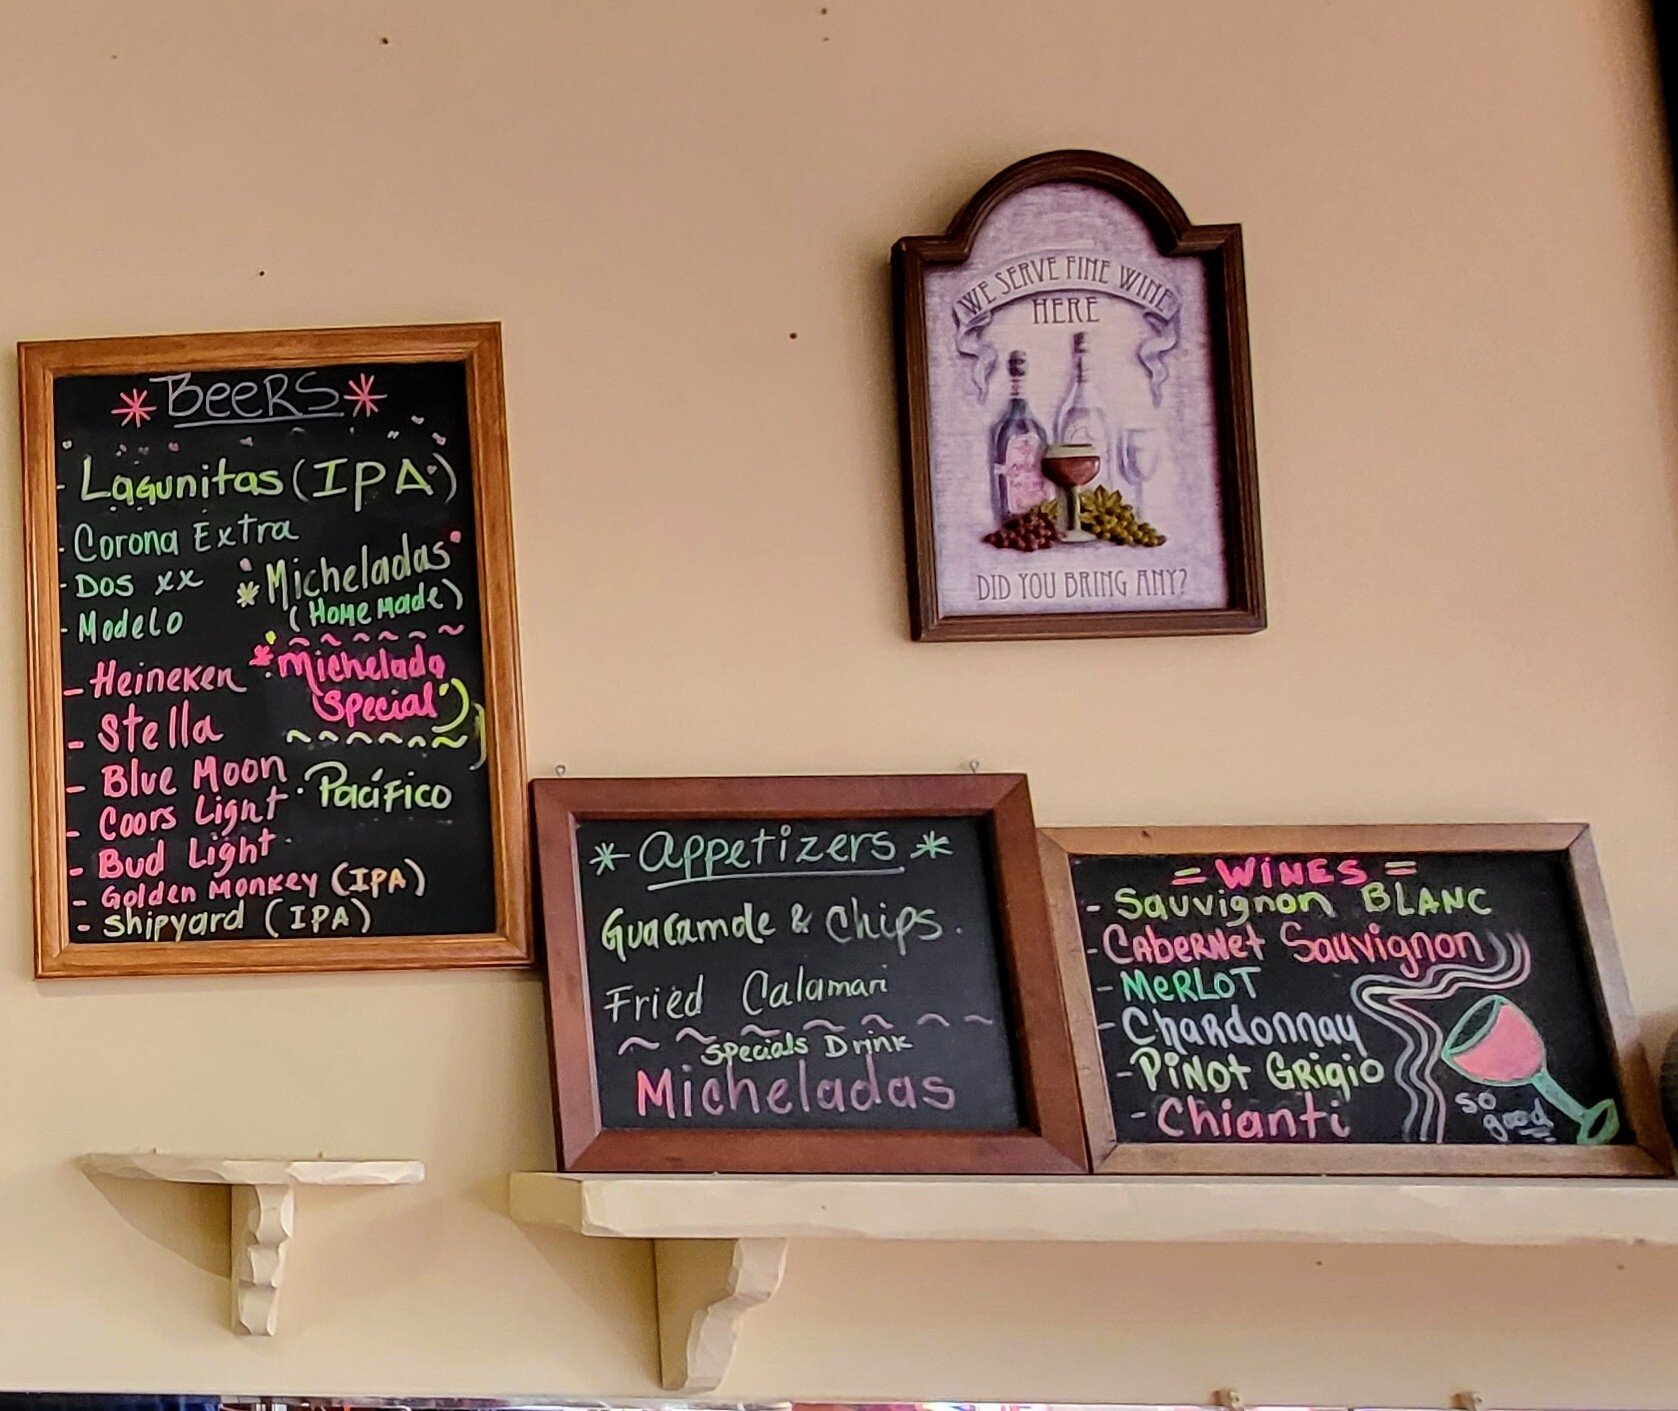 BeeRS
- Lagunitas (IPA)
- Corona Extra
- Dos xx
- Modelo
Micheladas
(Home made)
- Heineken
- Stella
- Blue Moon
- Coors Light
- Bud Light
- Golden Monkey (IPA)
- Shipyard (IPA)
Michelada
Special
Pacífico
WE SERVE FINE WINE
HERE
DID YOU BRING ANY?
Appetizers
Guacamole & Chips.
Fried Calamari
Specials Drink
Micheladas
= WINES =
- Sauvignon BLANC
- CABeRNet Sauvignon
- MeRLOT
- Chardonnay
- PiNOt GRigio
- Chianti
so
good